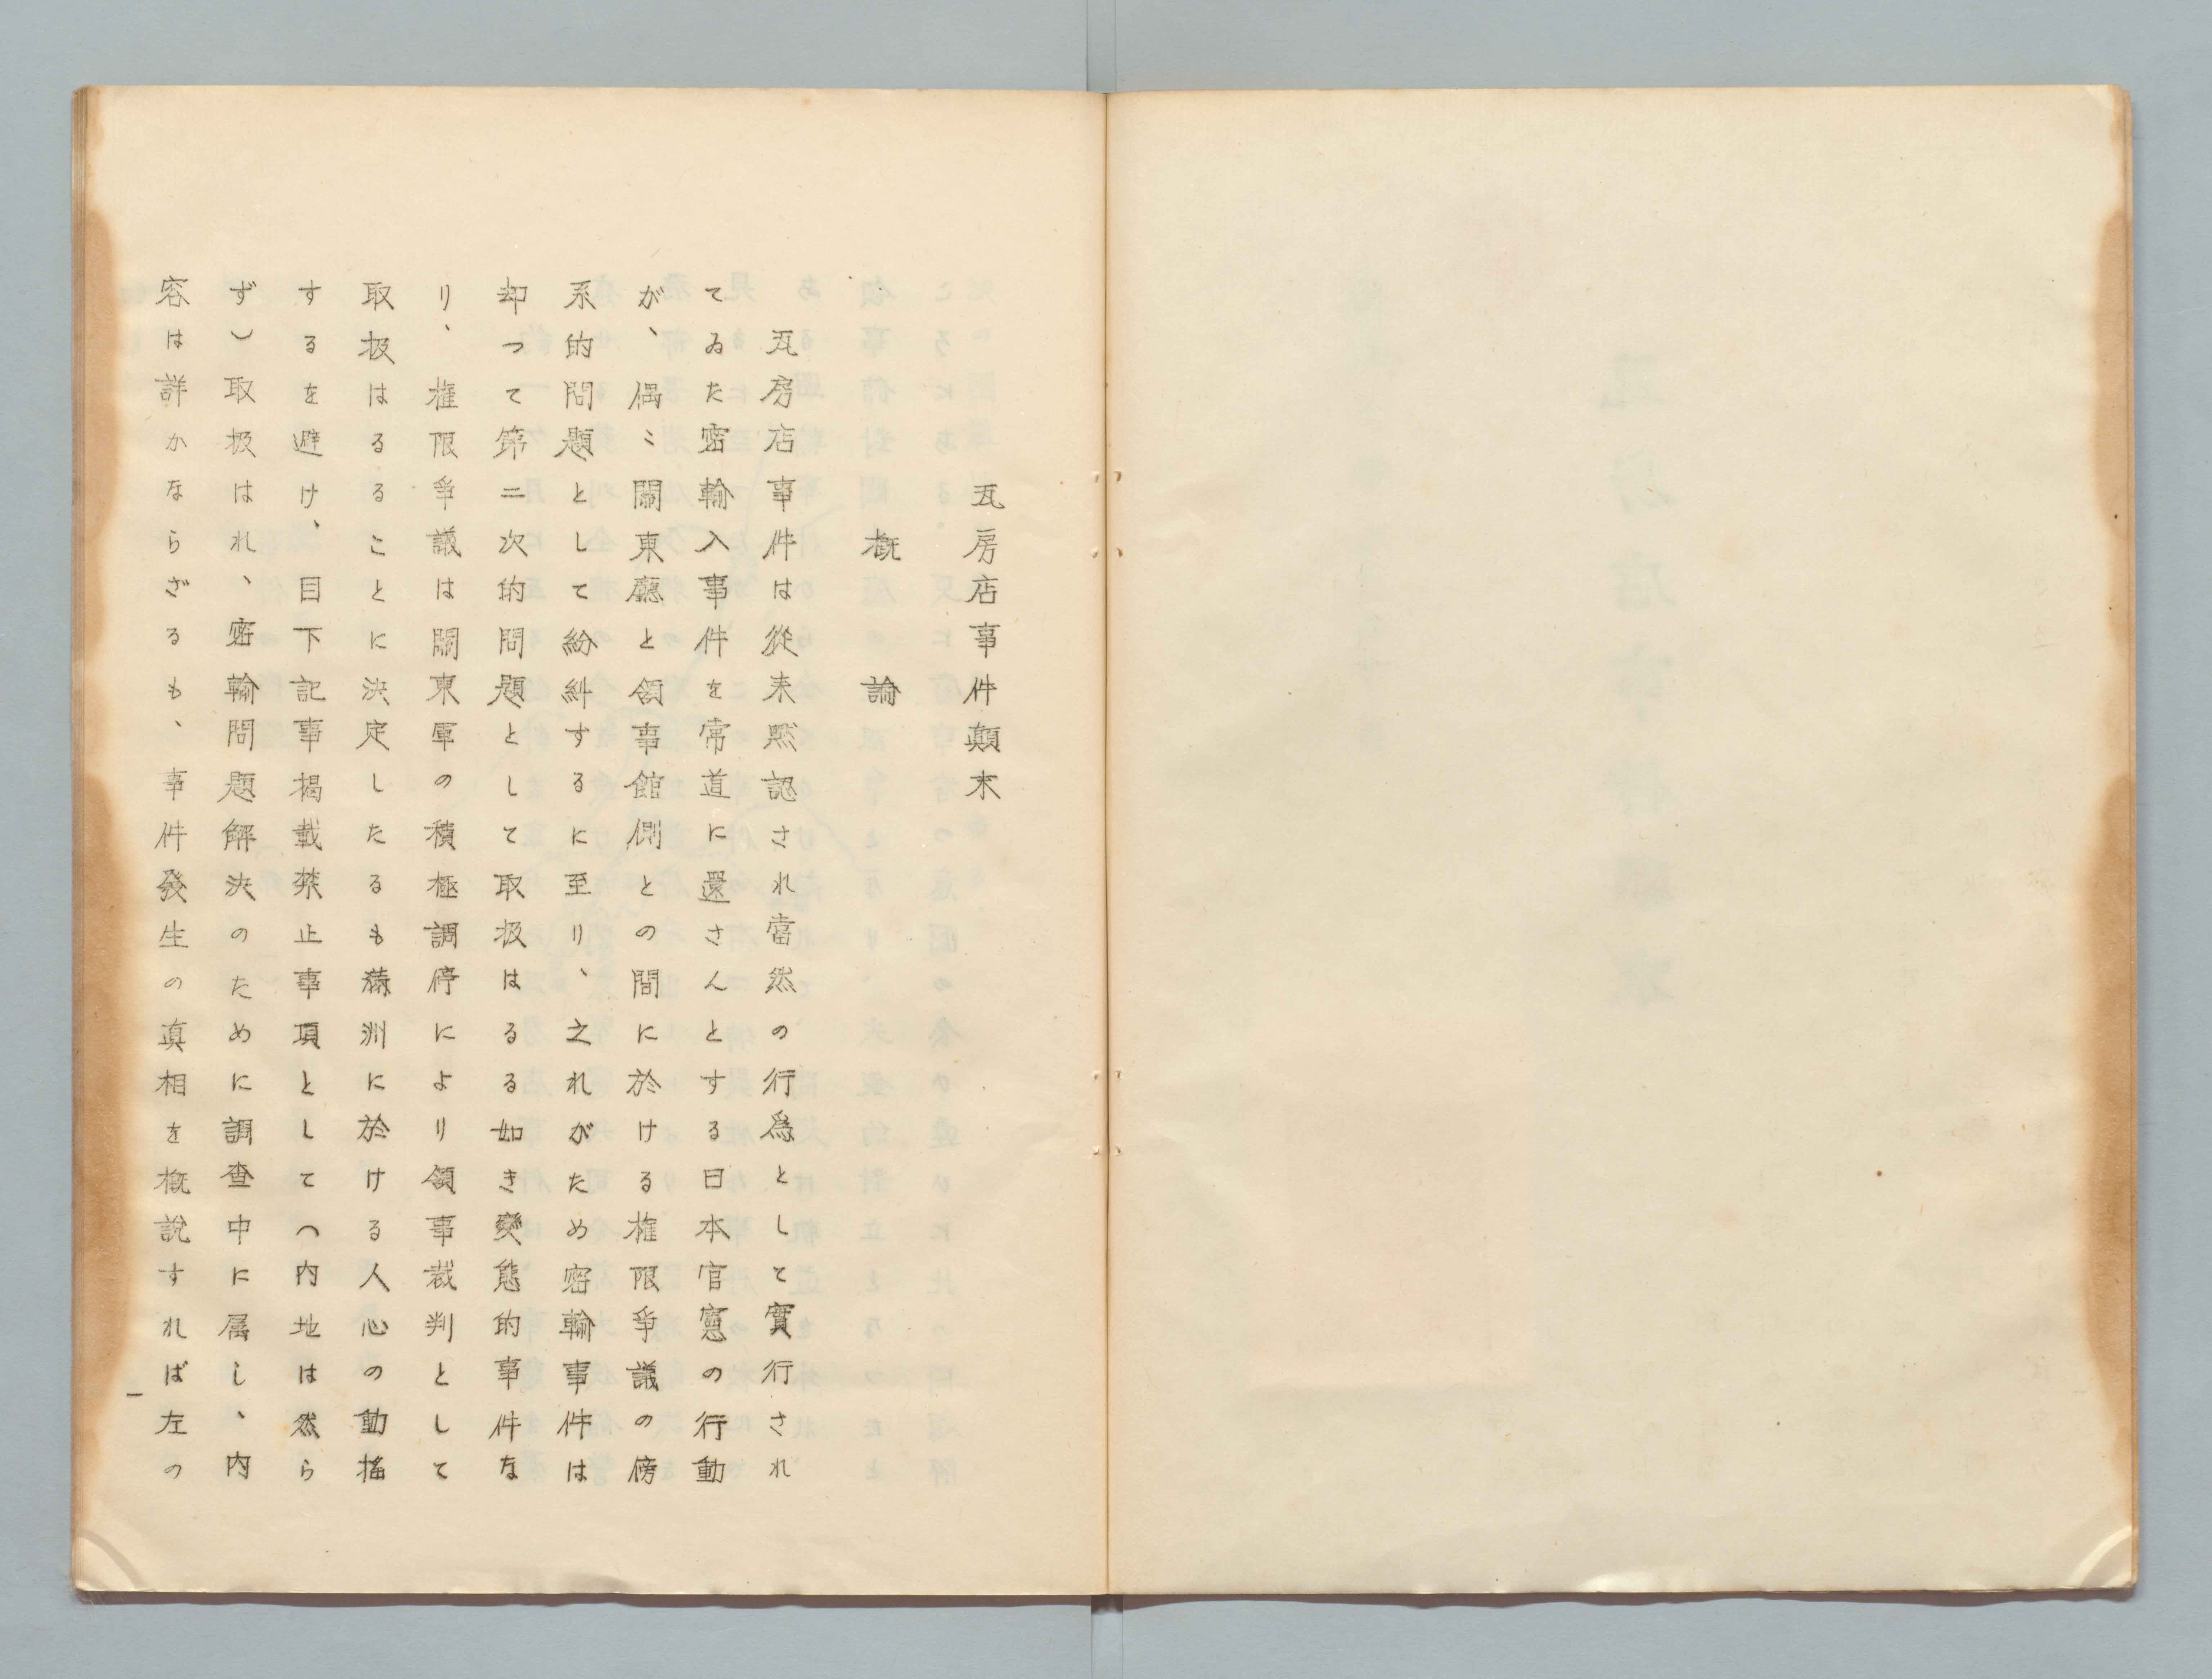 瓦房店事件顛末
概論
瓦房店事件は從来黙認され當然の行爲として實行され
てゐた密輸入事件を常道に還さんとする日本官憲の行動
が、偶〻關東廳と領事館側との間に於ける権限爭議の傍
系的問題として紛糾するに至り、之れがため密輸事件は
却つて第二次的問題として取扱はるる如き變態的事件な
り、権限爭議は關東軍の積極調停により領事裁判として
取扱はるることに決定したるも満洲に於ける人心の動揺
するを避け、目下記事揭載禁止事項として（内地は然ら
ず）取扱はれ、密輸問題解決のために調査中に属し、内
容は詳かならざるも、事件發生の真相を概説すれば左の
一